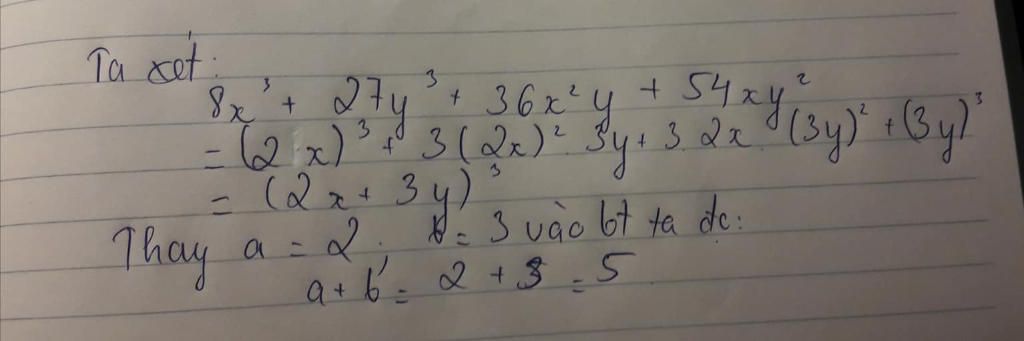 Ta xét:
8x³ + 27y³ + 36x²y + 54xy²
= (2x)³ + 3(2x)² 3y + 3 2x (3y)² + (3y)³
= (2x + 3y)³
Thay a = 2, b = 3 vào bt ta đc:
a + b = 2 + 3 = 5